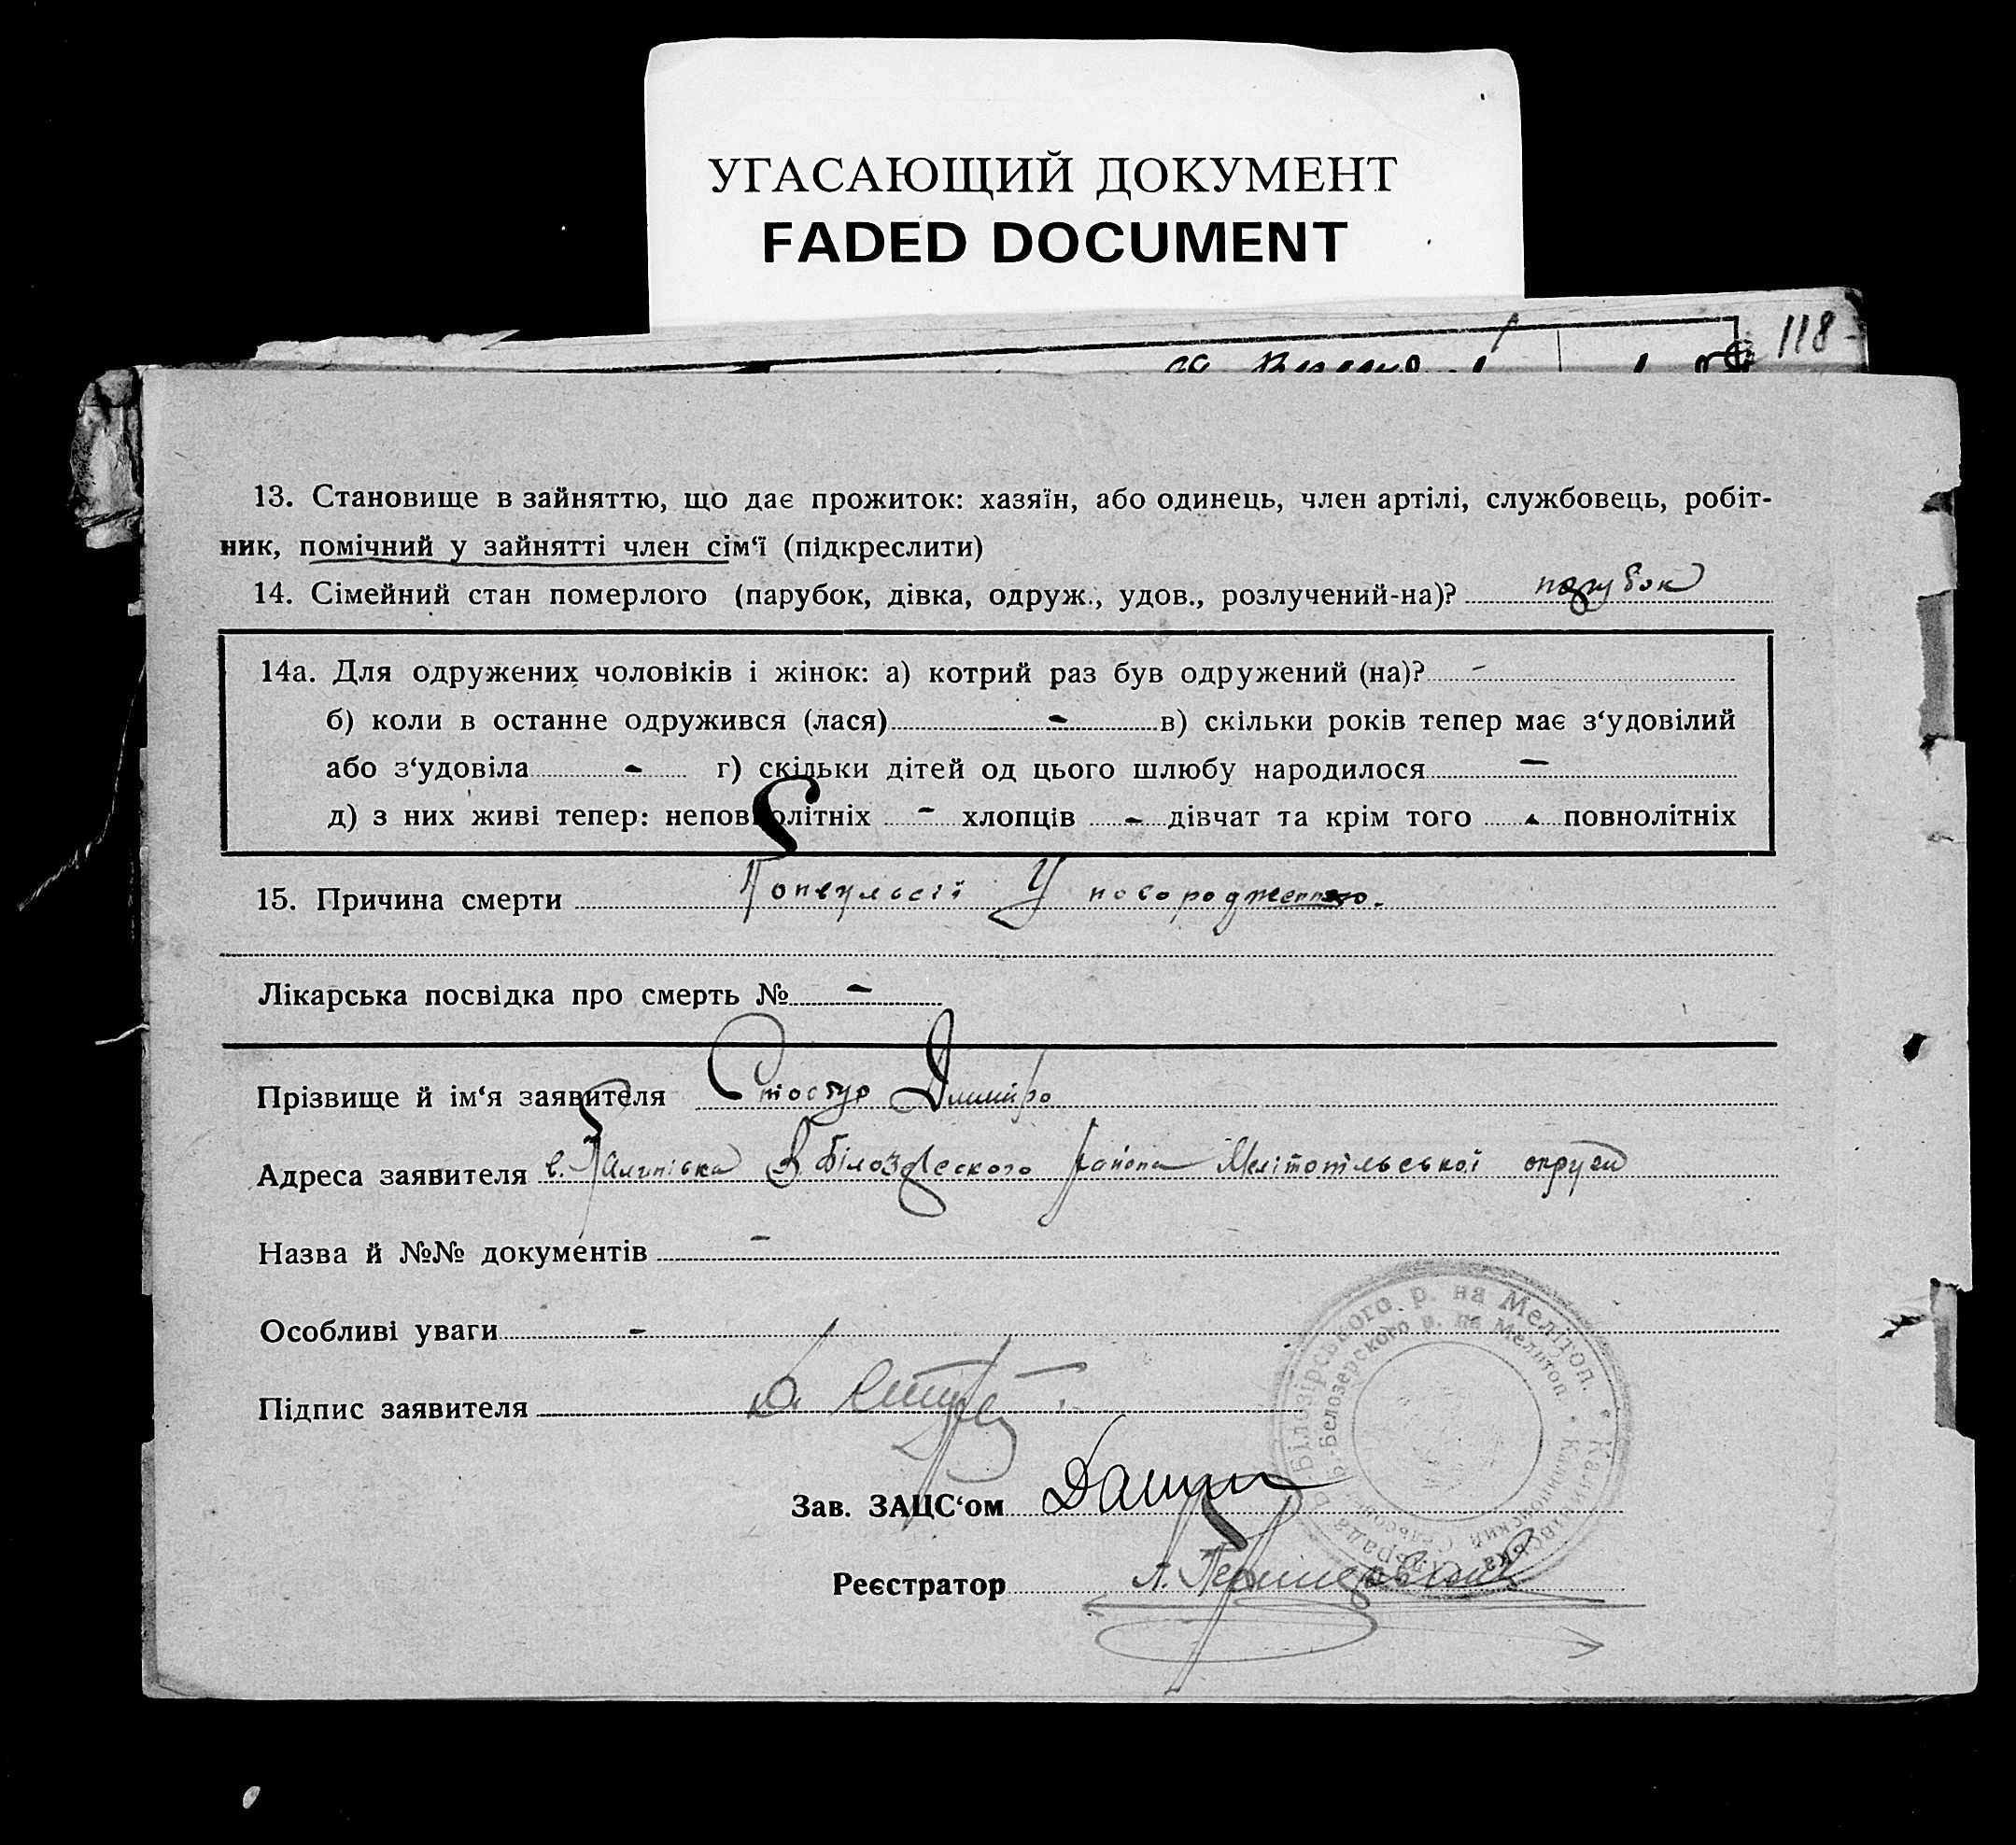 УГАСАЮЩИЙ ДОКУМЕНТ
FADED DOCUMENT
118
13. Становище в зайняттю, що дає прожиток: хазяїн, або одинець, член артілі, службовець, робіт-
ник, помічний у зайнятті член сім‘ї (підкреслити)
14. Сімейний стан померлого (парубок, дівка, одруж., удов., розлучений-на)? парубок
14а. Для одружених чоловіків і жінок: а) котрий раз був одружений (на)? -
б) коли в останнє одружився (лася) - в) скільки років тепер має з‘удовілий
або з‘удовіла - г) скільки дітей од цього шлюбу народилося -
д) з них живі тепер: неповнолітніх - хлопців - дівчат та крім того - повнолітніх
15. Причина смерти Конвульсії У новородженно.
Лікарська посвідка про смерть № -
Прізвище й ім‘я заявителя Дмитро
Адреса заявителя с. Калинівка В Білозерского района Мелітопільської округи
Назва й №№ документів -
Особливі уваги -
Підпис заявителя
Білозірського р. на Мелітоп. • Калинівська Сільрада
Б.-Белозерского р. на Мелитоп. • Калиновский Сельсовет
Зав. ЗАЦС‘ом
Реєстратор